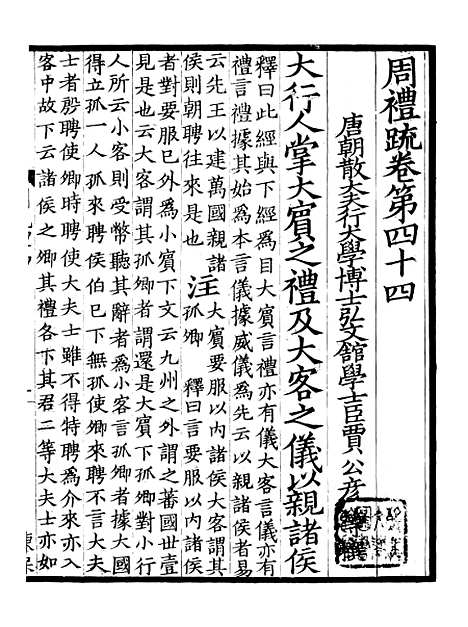 周禮疏卷第四十四
唐朝散大夫行太學博士弘文舘學士臣賈公彦等撰
大行人掌大賓之禮及大客之儀以親諸侯
釋曰此經與下經爲目大賓言禮亦有儀大客言儀亦有
禮言禮據其始爲本言儀據威儀爲先云以親諸侯者易
云先王以建萬國親諸
侯則朝聘往來是也
注
大賓要服以内諸侯大客謂其
孤卿
釋曰言要服以内諸侯
者對要服已外爲小賓下文云九州之外謂之蕃國世壹
見是也云大客謂其孤卿者謂還是大賓下孤卿對小行
人所云小客則受幣聽其辭者爲小客言孤卿者據大國
得立孤一人孤來聘侯伯已下無孤使卿來聘不言大夫
士者殷聘使卿時聘使大夫士雖不得特聘爲介來亦入
客中故下云諸侯之卿其禮各下其君二等大夫士亦如